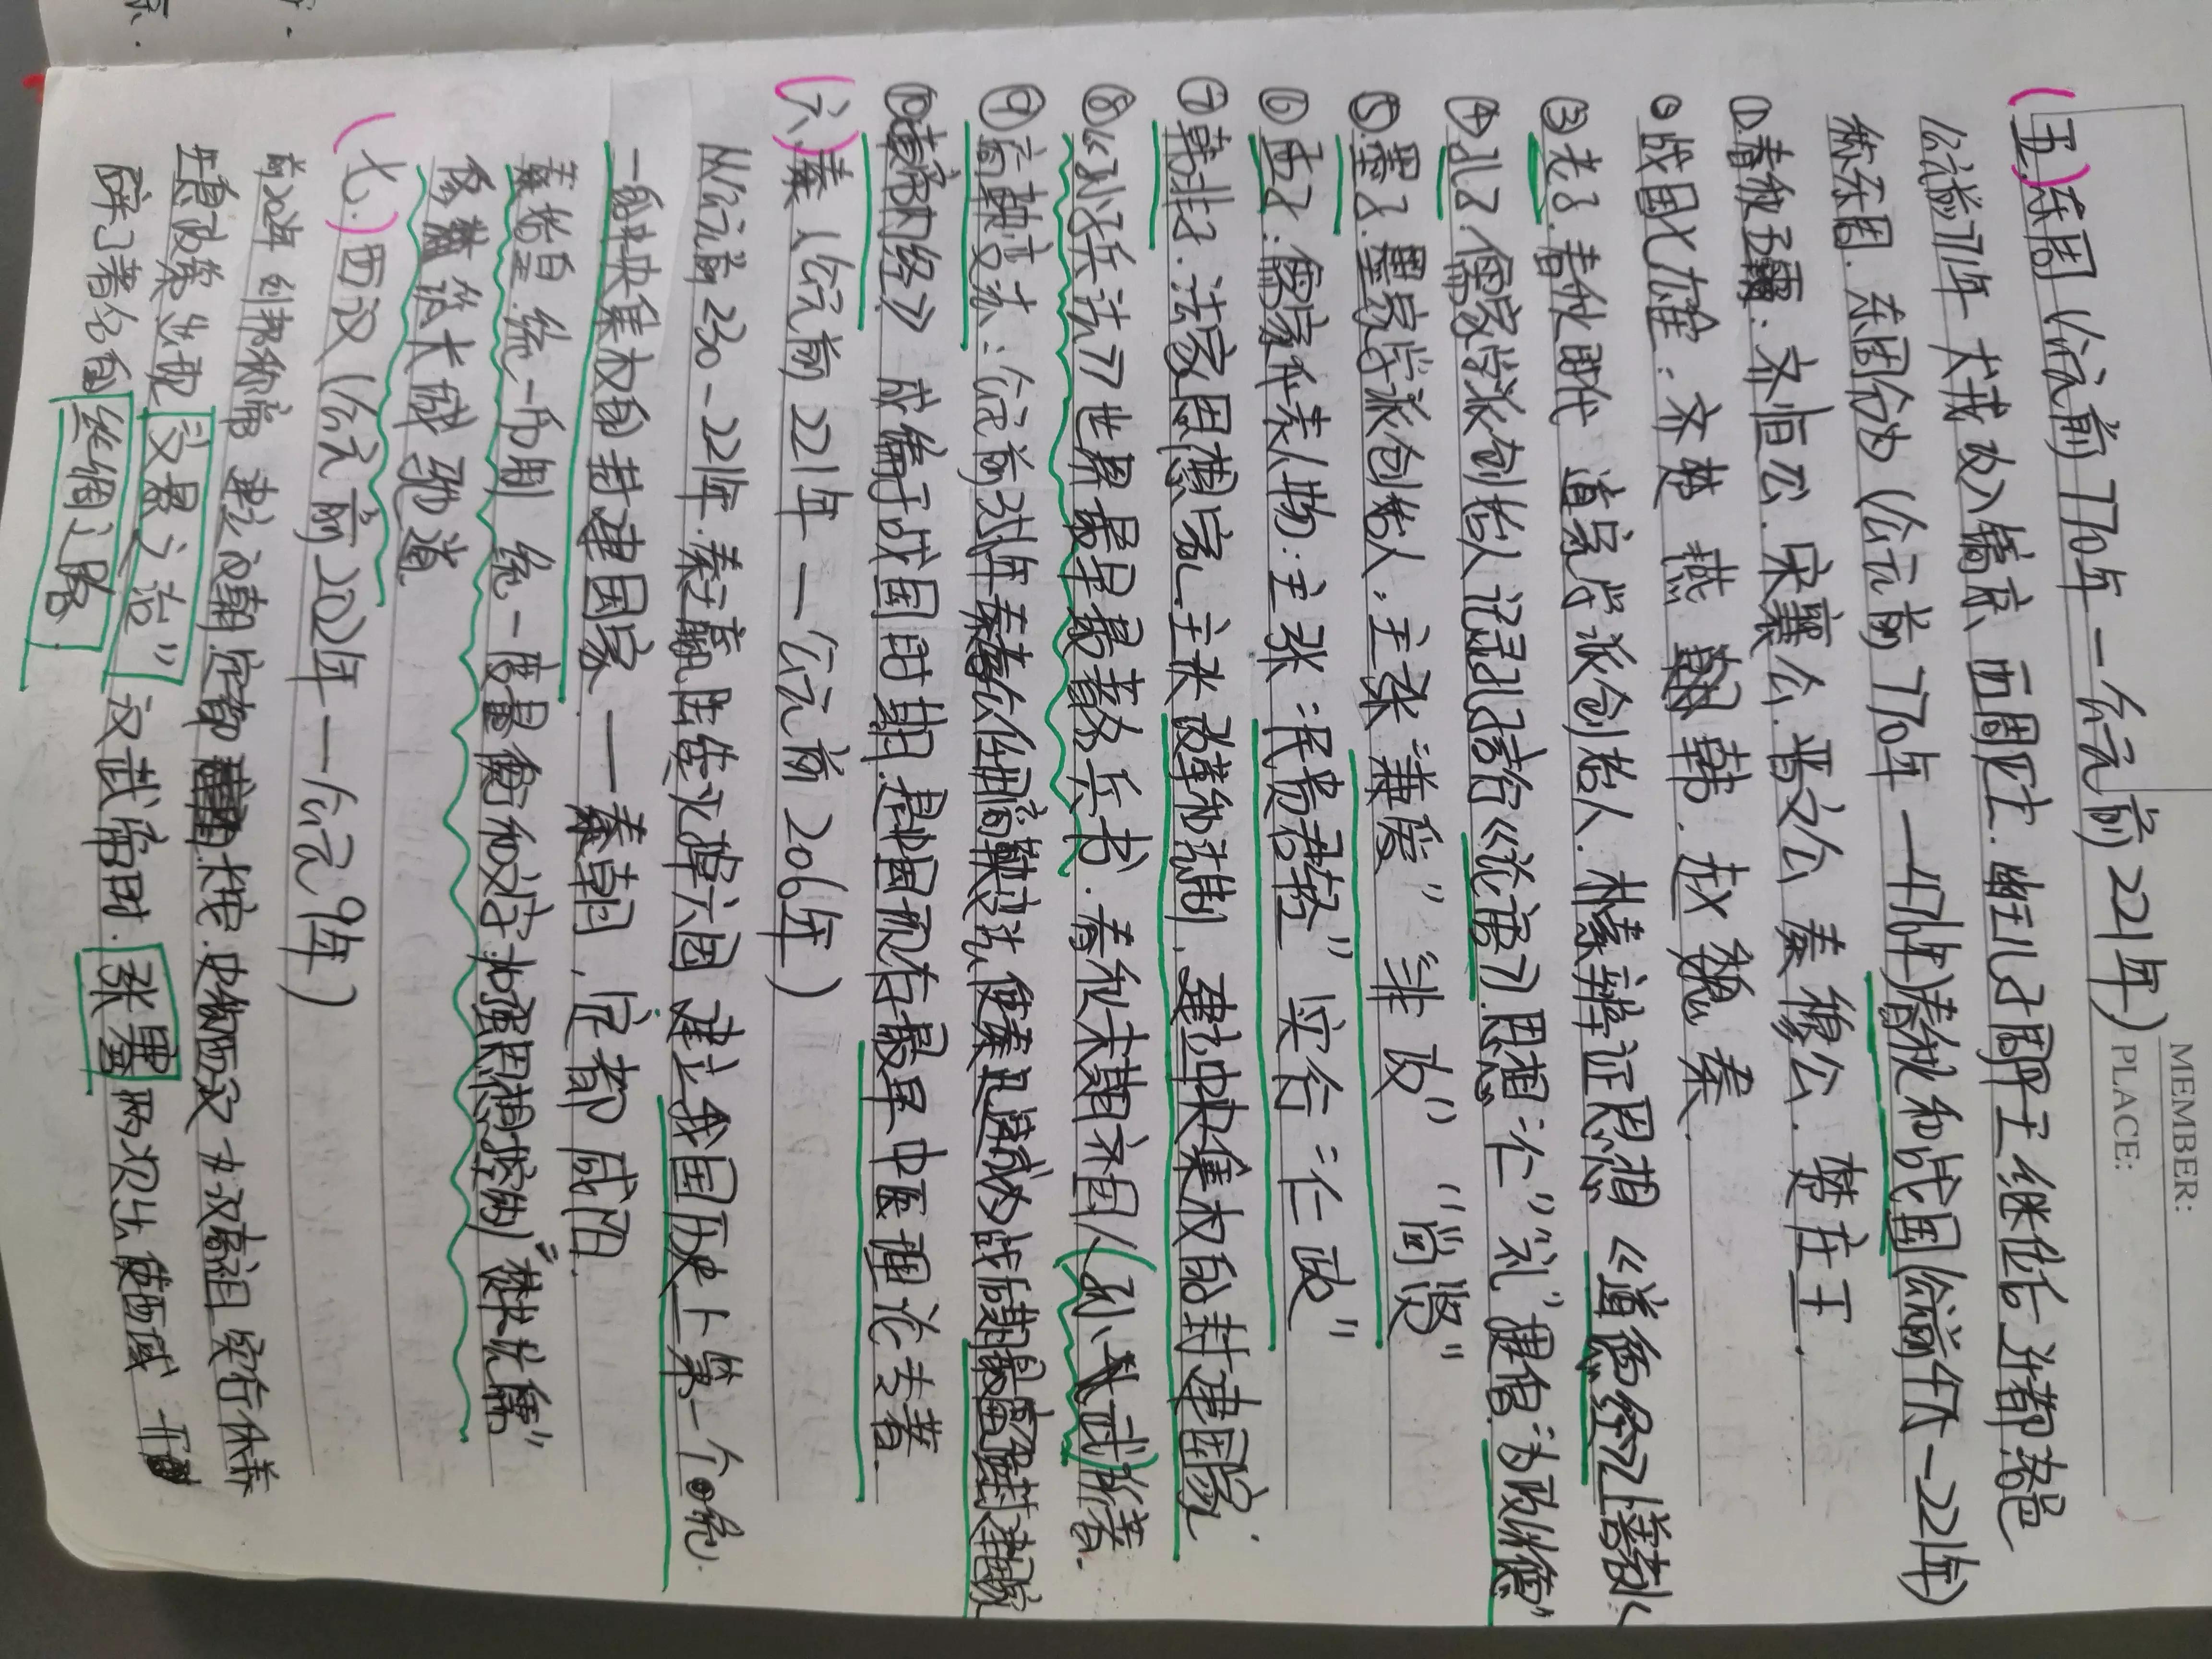 MEMBER:
PLACE:
(五.)东周(公元前770年—公元前221年)
公元前771年 犬戎攻入镐京 西周亡. 幽王儿子周平王继位 迁都洛邑
称东周. 东周分为(公元前770年—476年)春秋和战国(公元前475—221年)
①.春秋五霸:齐恒公.宋襄公.晋文公 秦穆公.楚庄王.
战国七雄:齐 楚 燕 韩.赵 魏 秦.
③老子.春秋时代 道家学派创始人.朴素辩证思想《道德经》
④孔子.儒家学派创始人 记录孔子言论《论语》.思想:"仁""礼"提倡"为政以德"
⑤墨子.墨家学派创始人.主张"兼爱""非攻""尚贤"
⑥孟子:儒家代表人物:主张:"民贵君轻"实行"仁政"
⑦韩非子.法家思想家.主张改革和法制.建立中央集权的封建国家.
⑧《孙子兵法》世界最早最著名兵书.春秋末期齐国人(孙武)所著.
⑨商鞅变法:公元前356年秦孝公任用商鞅变法,使秦迅速成为战国后期最富强封建国家
⑩《黄帝内经》成编于战国时期.是中国现存最早中医理论专著.
(六.)秦(公元前221年—公元前206年)
从公元前230-221年.秦王嬴政陆续灭掉六国 建立我国历史上第一个统
一的中央集权的封建国家—秦朝,定都咸阳.
秦始皇.统一币制 统一度量衡和文字.加强思想控制"焚书坑儒"
修筑大城 驰道.
(七.)西汉(公元前202年—公元9年)
前202年 刘邦称帝 建立汉朝.定都长安.史称西汉 为汉高祖 实行休养
生息政策 出现"文景之治" 汉武帝时.张骞两次出使西域 开
辟了著名的丝绸之路.